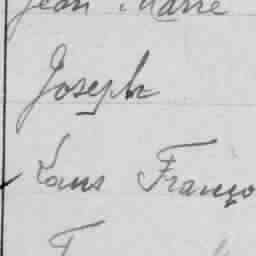 Jean Marie
Joseph
Louis Franço